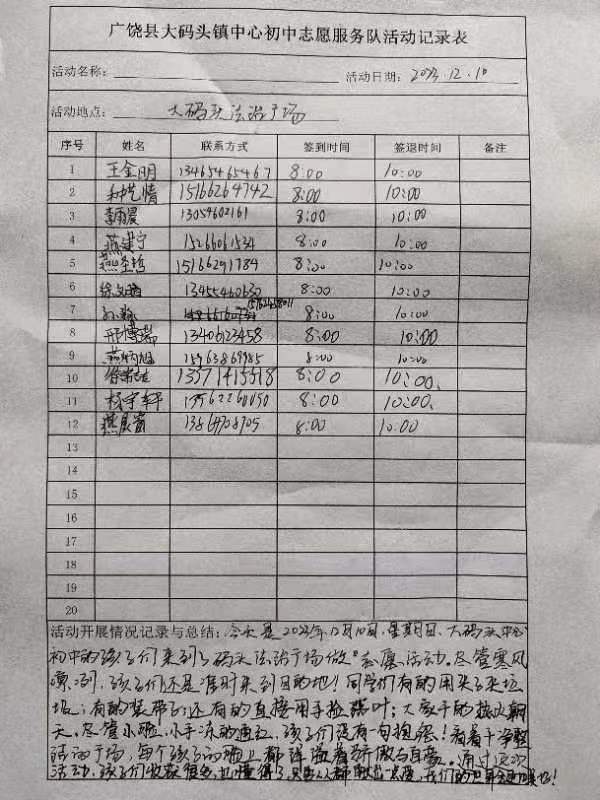 广饶县大码头镇中心初中志愿服务队活动记录表
活动名称： 活动日期：2023.12.10
活动地点： 大码头法治广场
序号 姓名 联系方式 签到时间 签退时间 备注
1 王金明 13465465467 8:00 10:00
2 种艺情 15166264742 8:00 10:00
3 李雨晨 13054602161 8:00 10:00
4 燕建宁 15266061534 8:00 10:00
5 燕圣哲 15166291784 8:00 10:00
6 徐 13455460630 8:00 10:00
7 8:00 10:00
8 邢博瑞 13406123458 8:00 10:00
9 燕炳旭 15963869985 8:00 10:00
10 13371415518 8:00 10:00.
11 杨宇轩 17562260050 8:00 10:00.
12 燕晨 13864708905 8:00 10:00
13
14
15
16
17
18
19
20
活动开展情况记录与总结：今天是2023年12月10日，星期日、大码头中心
初中的孩子们来到了码头法治广场做“志愿活动。尽管寒风
凛冽，孩子们还是准时来到目的地！同学们有的用夹子夹垃
圾；有的装袋子；还有的直接用手捡落叶；大家干的热火朝
天。尽管小脸、小手冻的通红，孩子们没有一句抱怨！看着干净整
洁的广场，每个孩子的脸上都洋溢着骄傲与自豪。通过这次
活动，孩子们收获很多，也懂得了只要人人都献出一点爱，我们的世界会更加美好！